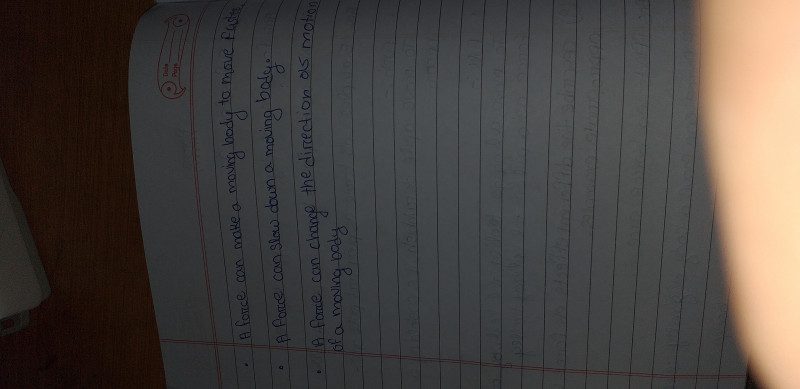 Date
Page
• A force can make a moving body to move fast
• A force can slow down a moving body.
• A force can change the direction as motion
of a moving body